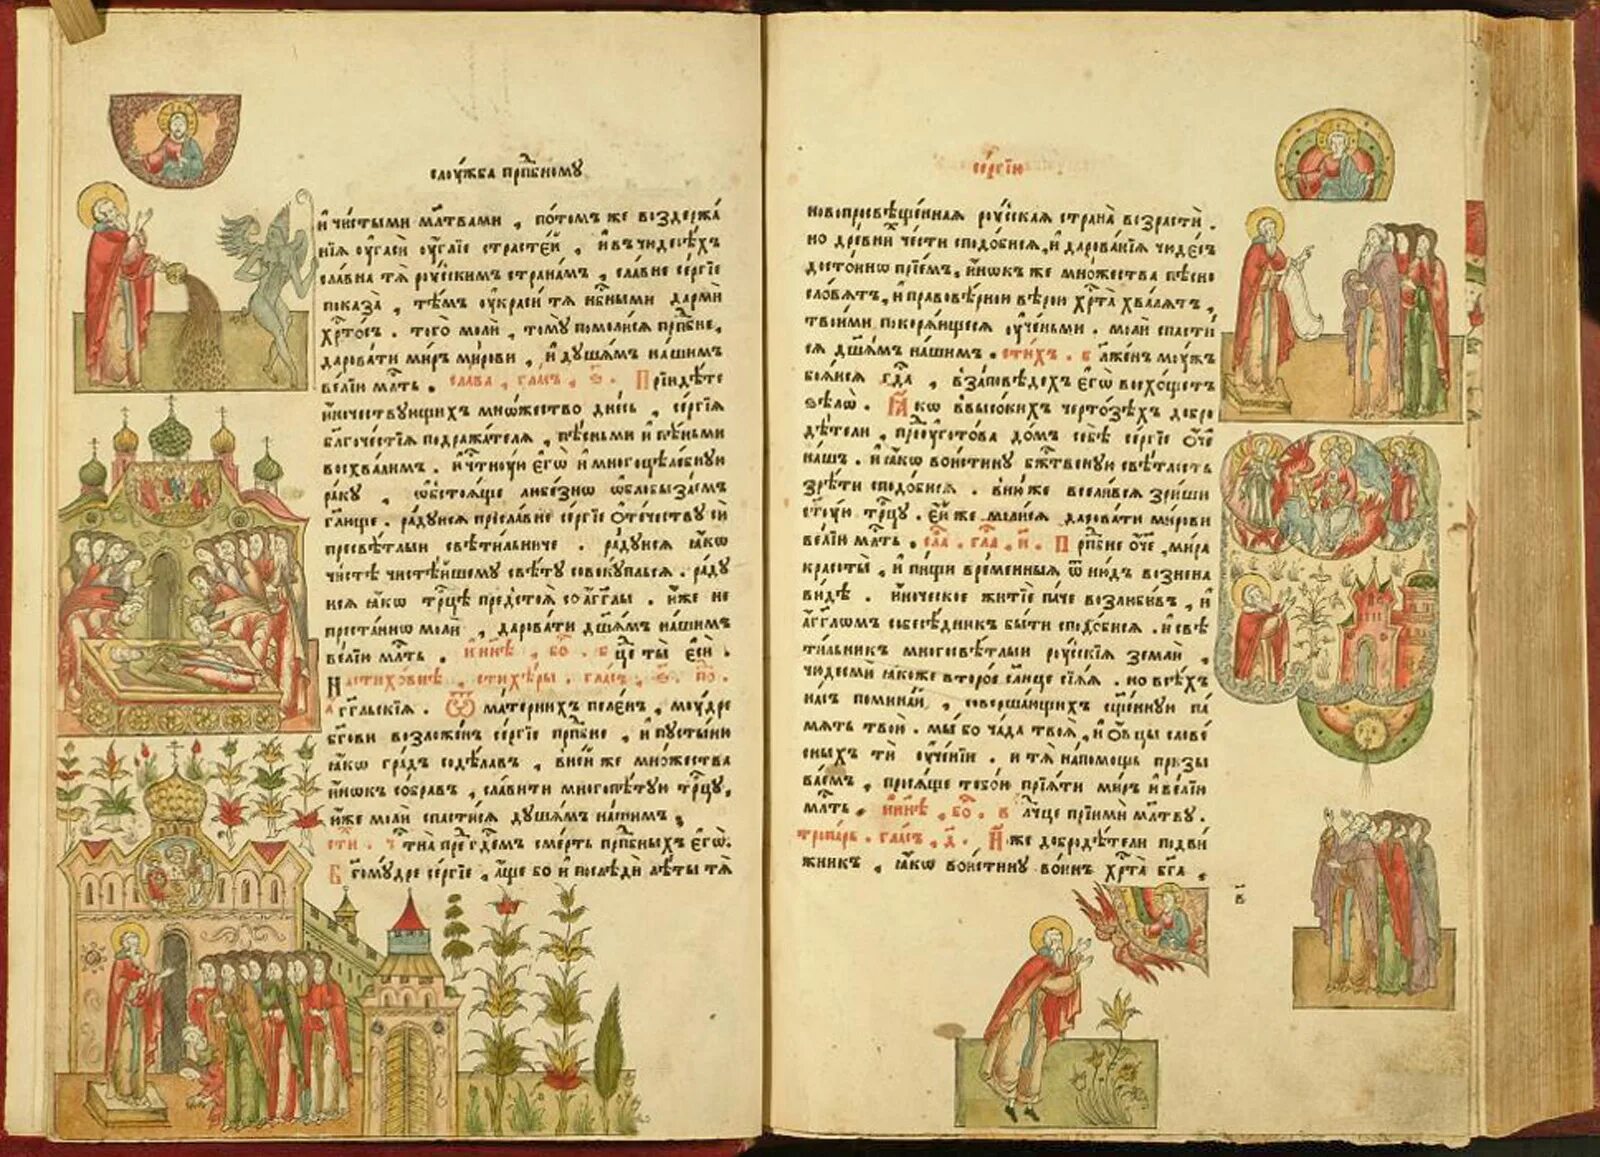 слоужба прпⷣбномꙋ
и҆ чи́стыми мл҃твами , пото́мъ же воздержа́
нїѧ ѹ҆гасѝ ѹ҆́глїе страсте́й , и҆ въ чюдесѣ́хъ
сла́вна тѧ роу́сскимъ страна́мъ , сла́вне се́ргїе
показа̀ , тѣ́мъ ѹ҆красѝ тѧ нбⷭ҇ными да́рми
хрⷭ҇то́съ . того̀ молѝ , томꙋ̀ помоли́сѧ прпⷣбне ,
дарова́ти ми́ръ ми́рови , и҆ дꙋша́мъ на́шимъ
ве́лїю млⷭ҇ть . сла́ва , гла́съ , ѕ҃ . Прїидѣ́те
и҆́ночествꙋющихъ мно́жество дне́сь , се́ргїѧ
благоче́стїѧ подража́телѧ , пѣ́сньми и҆ пѣ́ньми
восхва́лимъ . и҆ чⷭ҇тнꙋю є҆гѡ̀ и҆ многоцѣле́бнꙋю
ра́кꙋ , ѡ҆бстоѧ́ще любе́знѡ ѡ҆блобыза́емъ
гл҃юще . ра́дꙋисѧ пресла́вне се́ргїе ѻ҆те́чествꙋ сѝ
пресвѣ́тлыи свѣти́льниче . ра́дꙋисѧ ꙗ҆́кѡ
чи́стѣ чистѣ́йшемꙋ свѣ́тꙋ совокꙋпльсѧ . ра́дꙋ
исѧ ꙗ҆́кѡ трⷪ҇цѣ предстоѧ̀ со а҆́гг҃лы . и҆́же не
преста́ннѡ молѝ , дарова́ти дш҃а́мъ на́шимъ
ве́лїю млⷭ҇ть . и҆ ны́нѣ , бо . бц҃е ты̀ є҆сѝ .
На стихо́внѣ , стихе́ры . гла́съ , ѕ҃ . по .
а҆́гг҃льскїѧ . Ѿ ма́тернихъ пеле́нъ , моу́дре
бг҃ови возложе́нъ се́ргїе прпⷣбне , и҆ пꙋсты́ню
ꙗ҆́кѡ гра́дъ содѣ́лавъ , в не́й же мно́жества
и҆́нокъ собра́въ , сла́вити многопѣ́тꙋю трⷪ҇цꙋ ,
и҆́же молѝ спасти́сѧ дꙋша́мъ на́шимъ ,
сти . чⷭ҇тна пред гдⷭ҇емъ сме́рть прпⷣбныхъ є҆гѡ̀ .
Бг҃омꙋ́дре се́ргїе , а҆́ще бо и҆ послѣдѝ лѣ́ты тѧ̀
се́ргїю
новопросвѣще́ннаѧ роу́сскаѧ страна̀ возрастѝ .
но дре́внїй че́сти сподо́бисѧ , и҆ дарова́нїѧ чюде́съ
досто́инѡ прїе́мъ , и҆́нокъ же мно́жества пѣсно
сло́вѧтъ , и҆ правовѣ́рнїи вѣ́рою хрⷭ҇та̀ хва́лѧтъ ,
твои́ми покорѧ́ющесѧ ѹ҆че́ньми . молѝ спасти́
сѧ дш҃а́мъ на́шимъ . сти́хъ . блаже́нъ моу́жъ
боѧ́исѧ гдⷭ҇а , в за́повѣдехъ є҆гѡ̀ восхо́щетъ
ѕѣлѡ̀ . Ꙗ҆́кѡ в высо́кихъ черто́зѣхъ добро
дѣ́тели , преѹ҆гото́ва до́мъ себѣ̀ се́ргїе ѻ҆́ч҃е
на́шъ . и҆ ꙗ҆́кѡ вои́стинꙋ бжⷭ҇твенꙋю свѣ́тлость
зрѣ́ти сподо́бисѧ . в ню́же всели́всѧ зри́ши
ст҃ꙋ́ю трⷪ҇цꙋ . є҆́й же моли́сѧ дарова́ти ми́рови
ве́лїю млⷭ҇ть . сла . гла . и҃ . Прпⷣбне ѻ҆́ч҃е , ми́ра
красоты̀ , и҆ пи́щи вре́менныѧ ѿню́дъ вознена
ви́дѣ . и҆́ноческое житїѐ па́че возлюби́въ , и҆
а҆́гг҃ломъ собесѣ́дникъ бы́ти сподо́бисѧ . и҆ свѣ
ти́льникъ многосвѣ́тлыи роу́сскїѧ землѝ ,
чюдесы̀ ꙗ҆́коже второ́е сл҃нце сїѧ́ѧ . но всѣ́хъ
на́съ поминаѝ , соверша́ющихъ сщ҃е́ннꙋю па́
мѧть твою̀ . мы́ бо ча́да твоѧ̀ , и҆ ѻ҆́вцы слове́
сныхъ тѝ ѹ҆че́нїи . и҆ тѧ̀ на по́мощь призы
ва́емъ , просѧ́ще тобо́ю прїѧ́ти ми́ръ и҆ ве́лїю
млⷭ҇ть . и҆ ны́нѣ , бо . влⷣчце прїимѝ мл҃твꙋ .
тропа́рь . гла́съ , д҃ . И҆́же добродѣ́тели подви́
жникъ , ꙗ҆́кѡ вои́стинꙋ во́инъ хрⷭ҇та̀ бг҃а ,
в҃